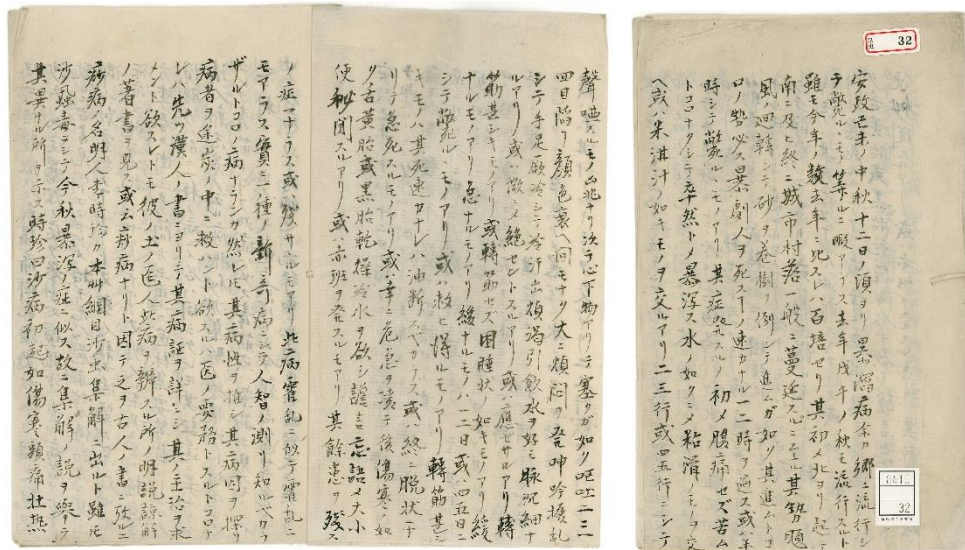 安政己未ノ中秋十二日ノ頃ヨリ暴瀉病余カ郷ニ流行シ
テ斃ル丶モノ算ルニ暇アラス去年戊午ノ秋モ流行スト
雖モ今年ノ数去年ニ比スレハ百培セリ其初メ北ヨリ起リ
南ニ及ヒ終ニ城市村落一般ニ蔓延スルニ至ル其勢颶
風ノ廻轉シテ砂ヲ巻樹ヲ倒シテ進ムガ如ク其進ムトコ
ロノ勢必ス暴劇人ヲ死スコノ速カナル一二時ヲ過ス或ハ半
時シテ斃ル丶モノアリ其症発スルノ初メ腹痛セズ苦ム
トコロナクシテ卒然トメ暴瀉ス水ノ如クニメ粘滑ノモノヲ交
ヘ或ハ米泔汁ノ如キモノヲ交ルアリ二三行或四五行ニシテ
聲嗄スルモノ凶兆ナリ次テ心下物アリテ塞クガ如ク嘔吐一二三
四目陥リ顔色衰ヘ間モナク大ニ煩悶ヲ呻吟擾乱
シテ手足厥冷シテ冷汗出煩渇引飲水ヲ好ミ脉沉細ナ
ルアリ或ハ微ニメ絶セントスルアリ或ハ應セサルアリ轉
筋甚シキモノアリ或轉筋セズ困睡状ノ如キモノアリ緩
ナルモノアリ急ナルモノアリ緩ナルモノハ一二日或ハ四五日ニ
シテ斃死ル丶モノアリ或ハ救ヒ得ルモノアリ轉筋甚シ
キモノハ其死速カナレハ油断スベカラス或ハ終ニ脱状ニナ
リテ急死スルモノアリ或ハ幸ニ危急ヲ凌テ後傷寒ノ如
ク舌黄胎或黒胎乾燥冷水ヲ欲シ譫言忘語メ大小
便秘閉スルアリ或ハ赤班ヲ発スルモノアリ其餘患ヲ殘ス
ノ症一ナラス或ハ殘サ丶ルモアリ此病霍乱ニ似テ霍乱ニ
モアラス實ニ一種ノ新奇病ニシテ人智ノ測リ知ルベカラ
ザルトコロノ病ナランカ然レ𪜈其病性ヲ推シ其病因ヲ探リ
病者ヲ途炭ノ中ニ救ハント欲スルハ医ノ要務トスルトコロナ
レハ先ツ漢人ノ書ニヨリテ其病証ヲ詳ニシ其ノ主治ヲ求
メント欲スレトモ彼ノ土ノ医人此病ヲ辨スル所ノ明説諒解
ノ著書ヲ見ス或云痧病ナリト因テ之ヲ古人ノ書ニ攷ルニ
痧病ノ名明人李時珍ノ本艸綱目沙虫集解ニ出ルト雖𪜈
沙風毒ニシテ今秋暴瀉ノ症ニ似ス故ニ集解ノ説ヲ舉テ
其異ナル所ヲ示ス時珍曰沙病初起如傷寒頭痛壮熱
32
32